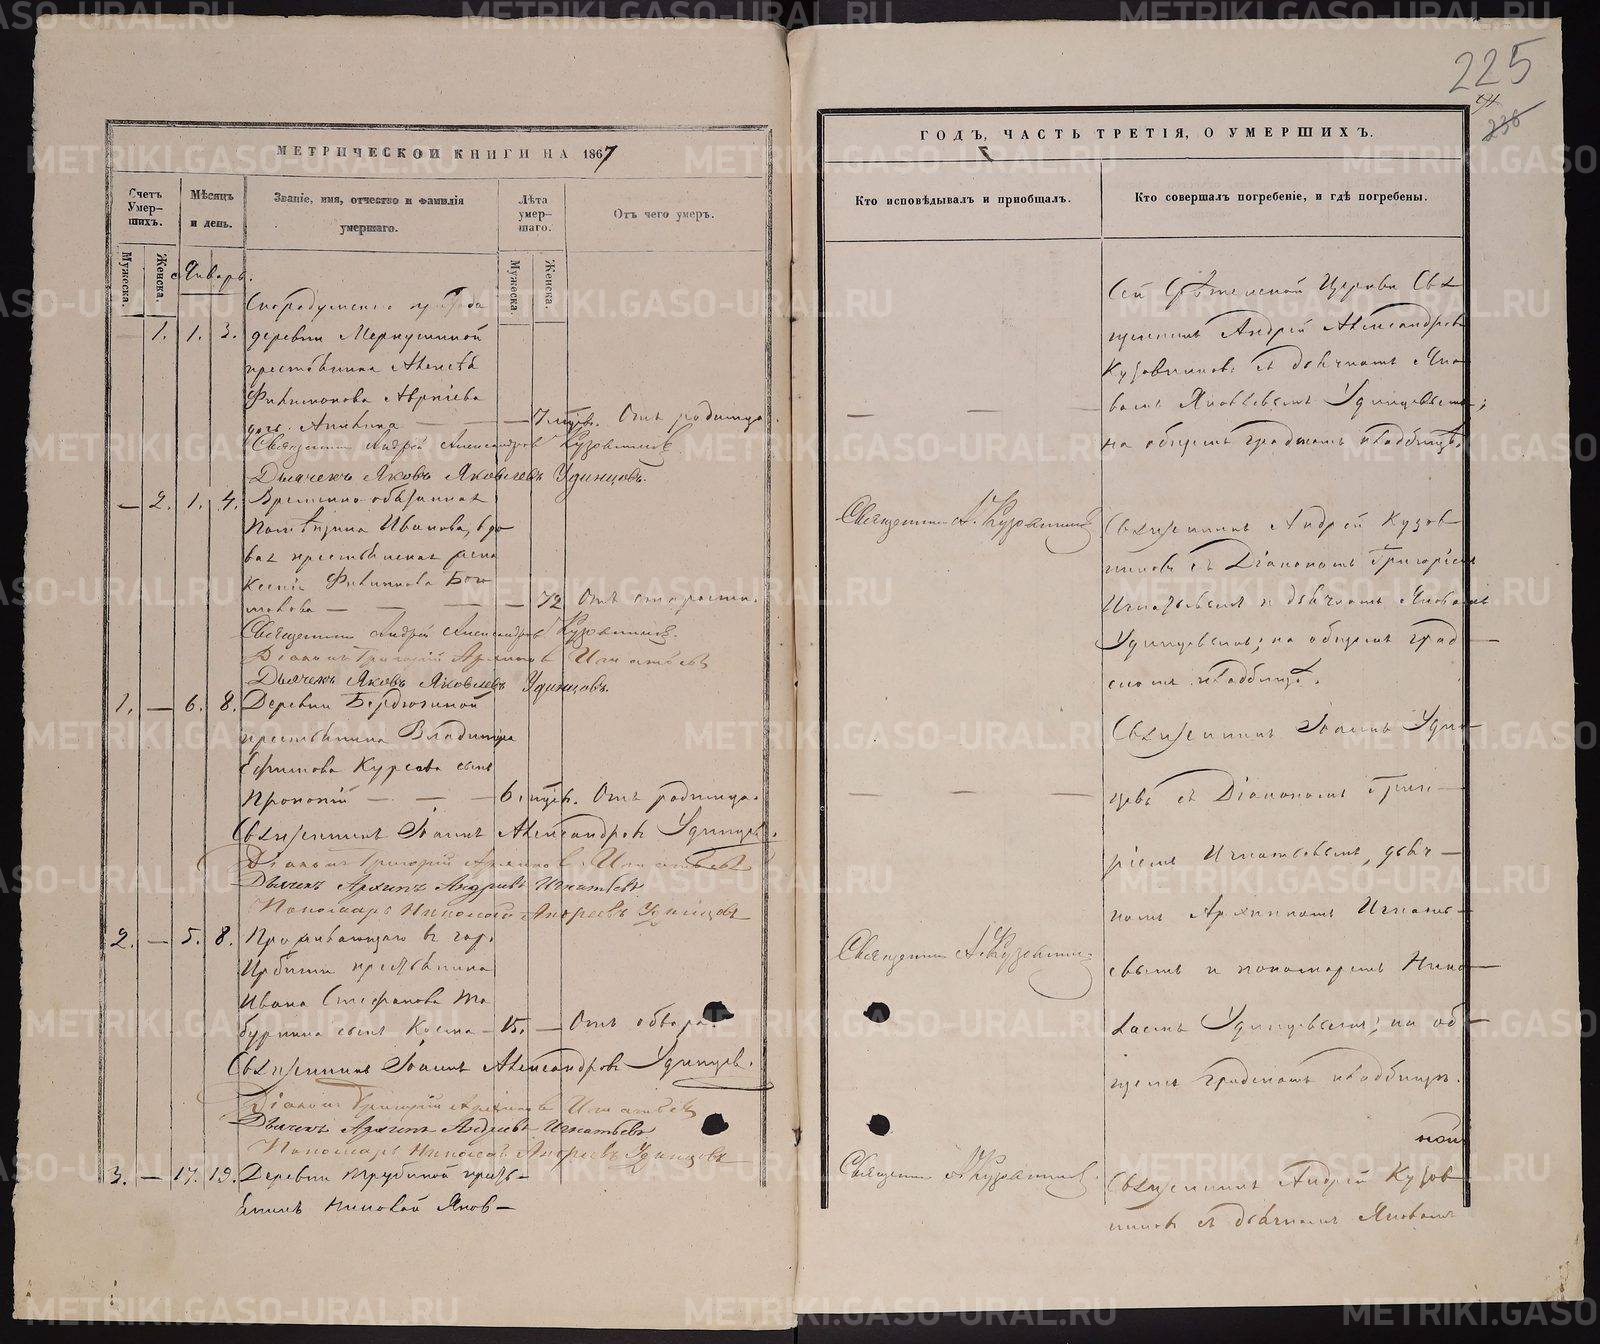 225
236
МЕТРИЧЕСКОЙ КНИГИ НА 1867
Счетъ Умер-шихъ.
Мѣсяцъ и день.
Званіе, имя, отчество и фамилія умершаго.
Лѣта умер-шаго.
Отъ чего умеръ.
Мужеска.
Женска.
Мужеска.
Женска.
Январь.
1. 1. 3.
деревни Меркушиной
крестьянина Алексѣя
Филимонова
дочь Анна — 7 мѣс. Отъ родимца
Священникъ Андрей Александровъ Кузовниковъ
Дьячекъ Яковъ Яковлевъ Удинцовъ.
— 2. 1. 4. Временно-обязанная
Иванова
крестьянская жена
Ксенія
— 72 Отъ старости.
Священникъ Андрей Александровъ Кузовниковъ
Діаконъ Григорій Игнатьевъ
Дьячекъ Яковъ Яковлевъ Удинцовъ.
1. — 6. 8. Деревни Бердюгиной
крестьянина Владимира
Ефимова Курсова сынъ
Прокопій — 6. мѣс. Отъ родимца.
Священникъ Іоаннъ Александровъ Удинцевъ.
Діаконъ Григорій Игнатьевъ
Дьячекъ Архипъ Андреевъ Игнатьевъ
Пономарь Николай Андреевъ Удинцовъ
2. — 5. 8. Проживающаго въ гор.
Ирбити крестьянина
Ивана Стефанова Та
буркина сынъ Косма — 15. — Отъ
Священникъ Іоаннъ Александровъ Удинцевъ.
Діаконъ Григорій Игнатьевъ
Дьячекъ Архипъ Андреевъ Игнатьевъ
Пономарь Николай Андреевъ Удинцовъ
3. — 17. 19. Деревни Трубиной кресть-
янинъ Николай Яков-
ГОДЪ, ЧАСТЬ ТРЕТІЯ, О УМЕРШИХЪ.
Кто исповѣдывалъ и пріобщалъ.
Кто совершалъ погребеніе, и гдѣ погребены.
Сей Церкви Свя
щенникъ Андрей Александровъ
Кузовниковъ съ дьячкомъ Яко
вомъ Яковлевымъ Удинцевымъ;
на общемъ градскомъ кладбищѣ.
Священникъ А. Кузовниковъ
Священникъ Андрей Кузов
никовъ съ Діакономъ Григоріемъ
Игнатьевымъ и дьячкомъ Яковомъ
Удинцевымъ; на общемъ град
скомъ кладбищѣ.
Священникъ Іоаннъ Удин
цевъ съ Діакономъ Григо
ріемъ Игнатьевымъ, дьяч
комъ Архипомъ Игнать
евымъ и пономаремъ Нико
Священникъ А. Кузовниковъ
лаемъ Удинцевымъ; на об
щемъ градскомъ кладбищѣ.
Священникъ А. Кузовниковъ.
Священникъ Андрей Кузов
никовъ съ дьячкомъ Яковомъ
METRIKI.GASO-URAL.RU